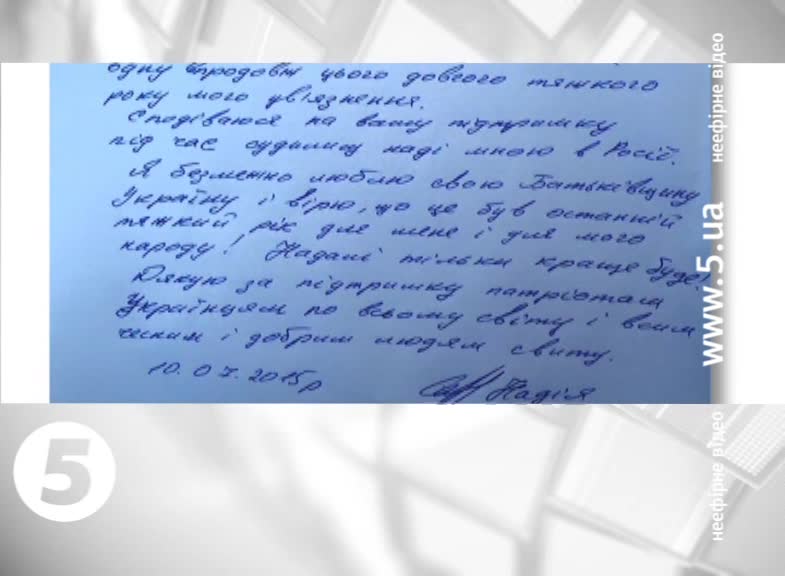 одну впродовж цього довгого тяжкого
року мого увязнення.
Сподіваюся на вашу підтримку
під час судилищ наді мною в Росії.
Я безмежно люблю свою Батьківщину
Україну і вірю, що це був останній
тяжкий рік для мене і для мого
народу! Надалі тільки краще буде!
Дякую за підтримку патріотам
Українцям по всьому світу і всим
чесним і добрим людям свиту.
10.07.2015р
Надія
5
неефірне відео
www.5.ua
неефірне відео